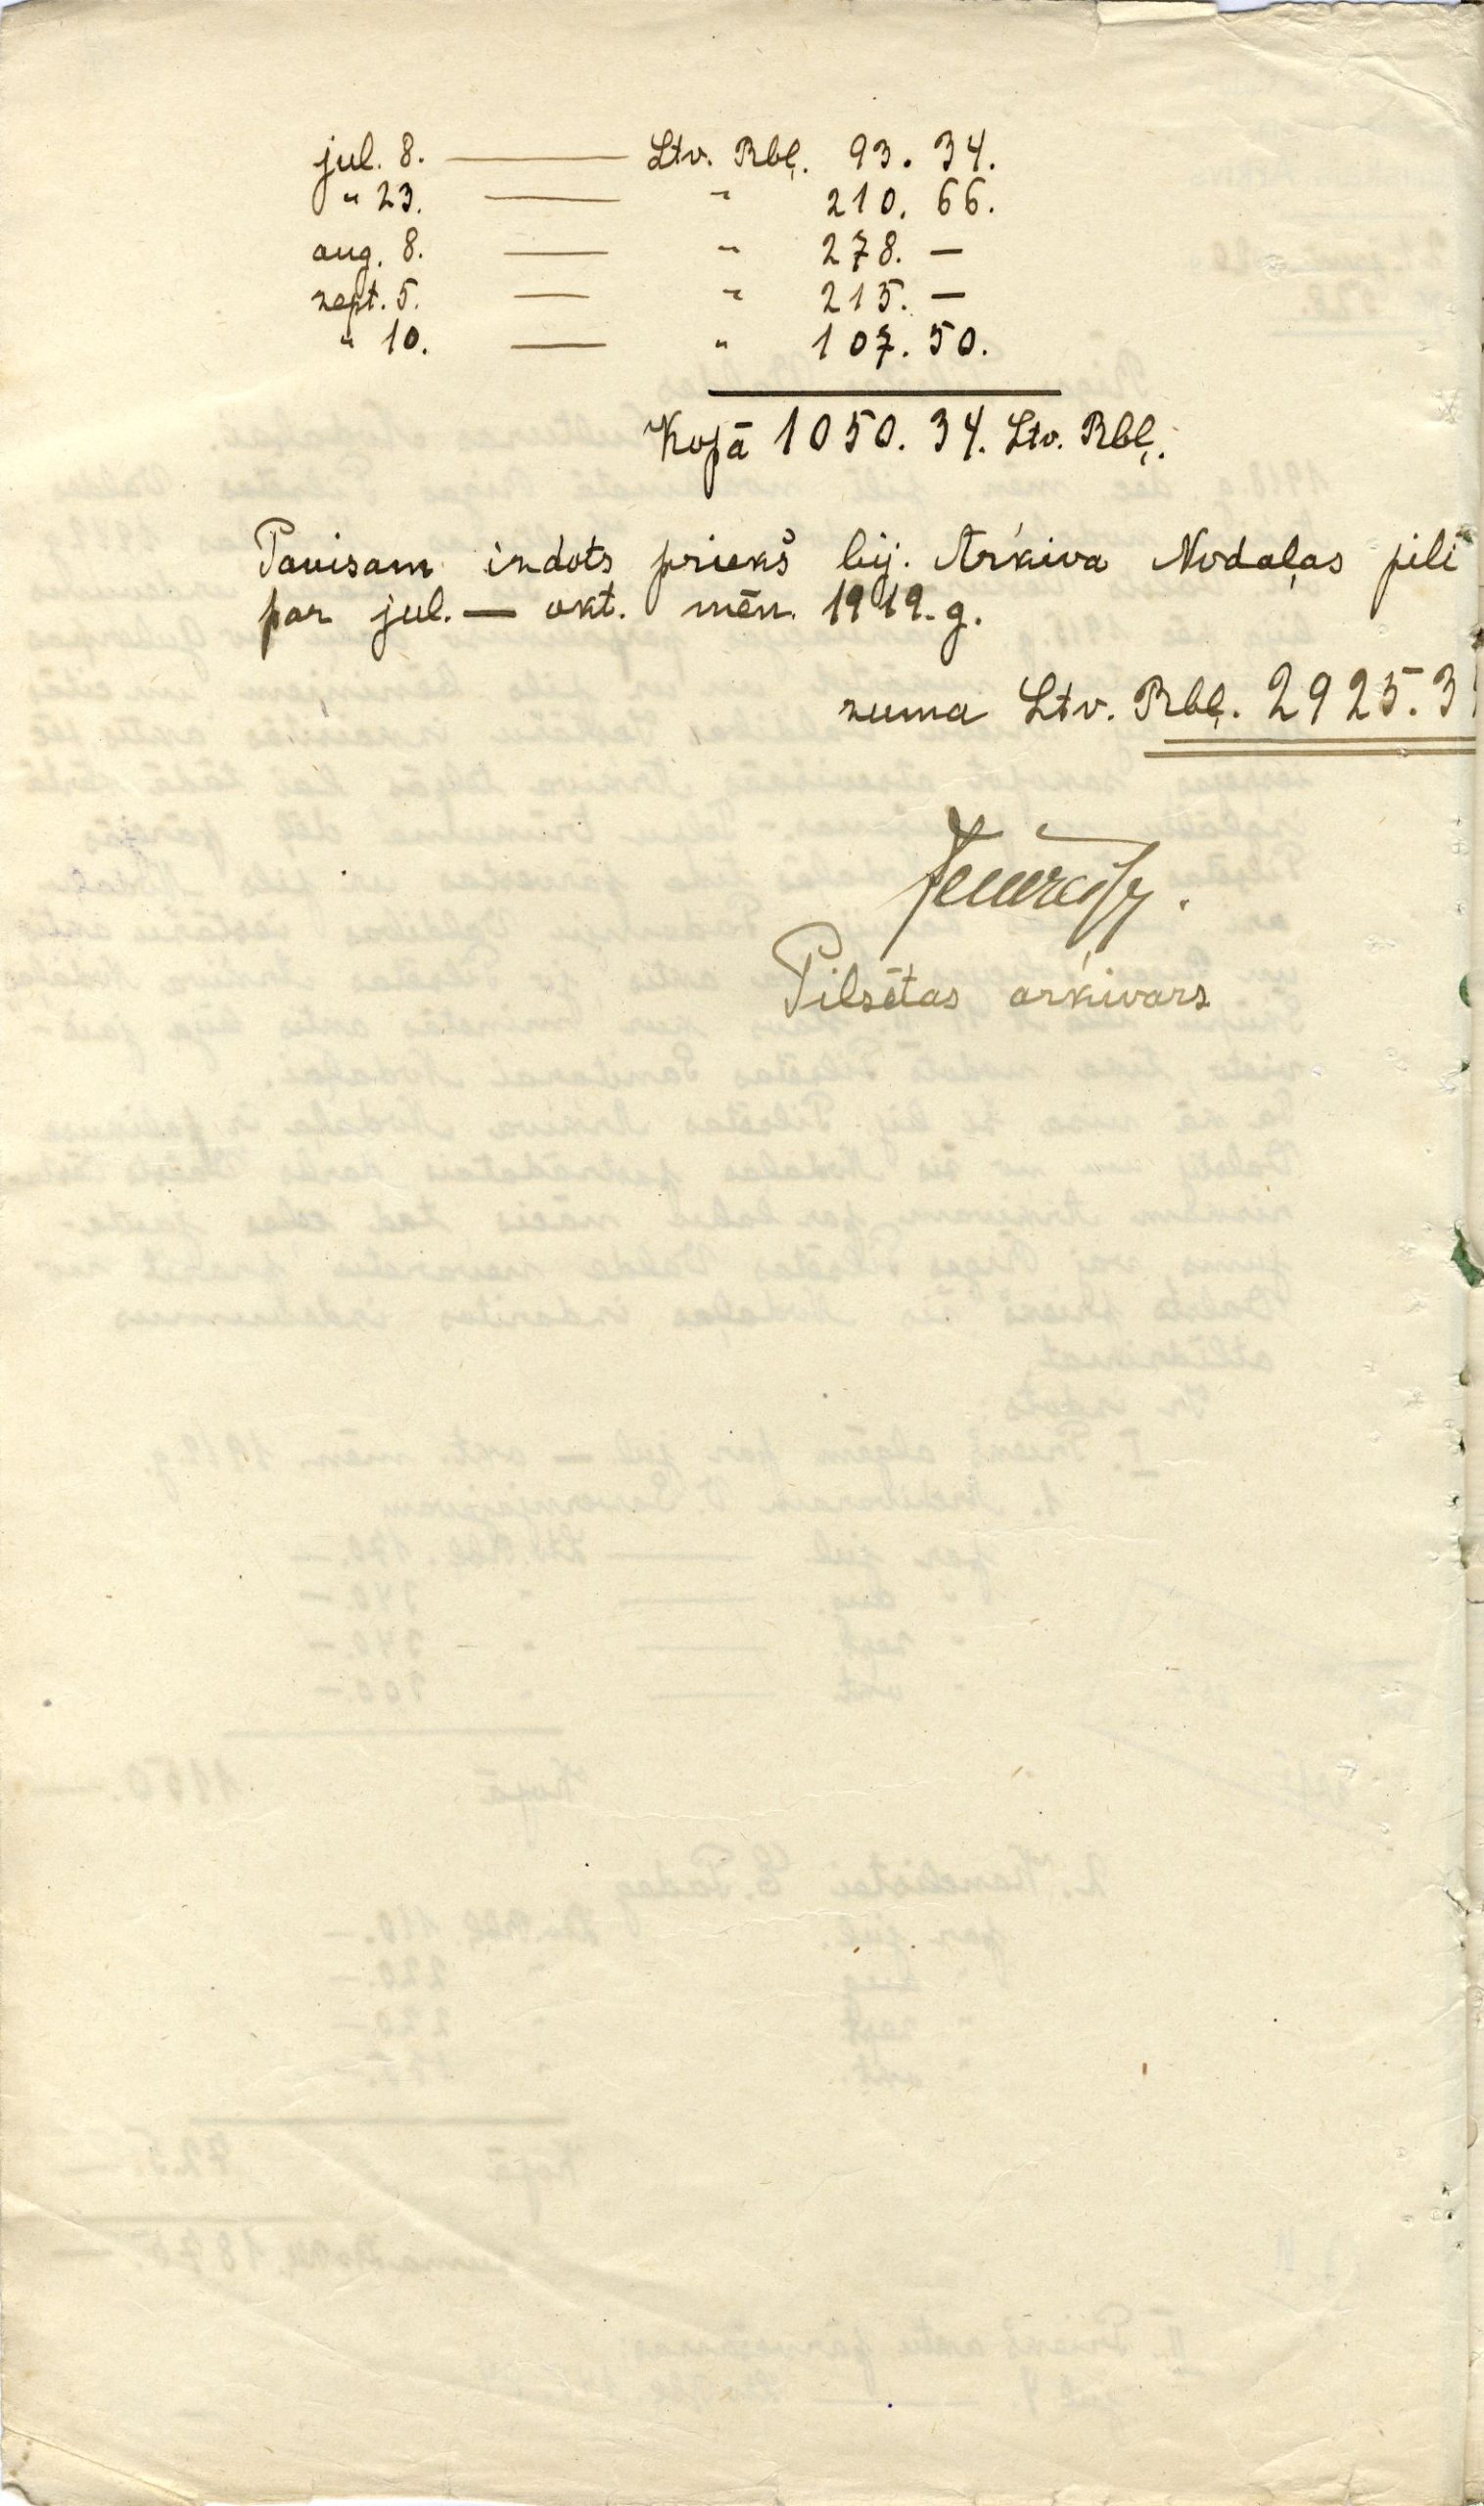 jul. 8. — Ltv. Rbļ. 93. 34.
" 23. — " 210. 66.
aug. 8. — " 278. —
sept. 5. — " 215. —
" 10. — " 107. 50.
Kopā 1050. 34. Ltv. Rbļ.
Pavisam izdots priekš bij. Arķiva Nodaļas pilī
par jul. — okt. mēn. 1919. g.
suma Ltv. Rbļ. 2925. 3
Pilsētas arķivars